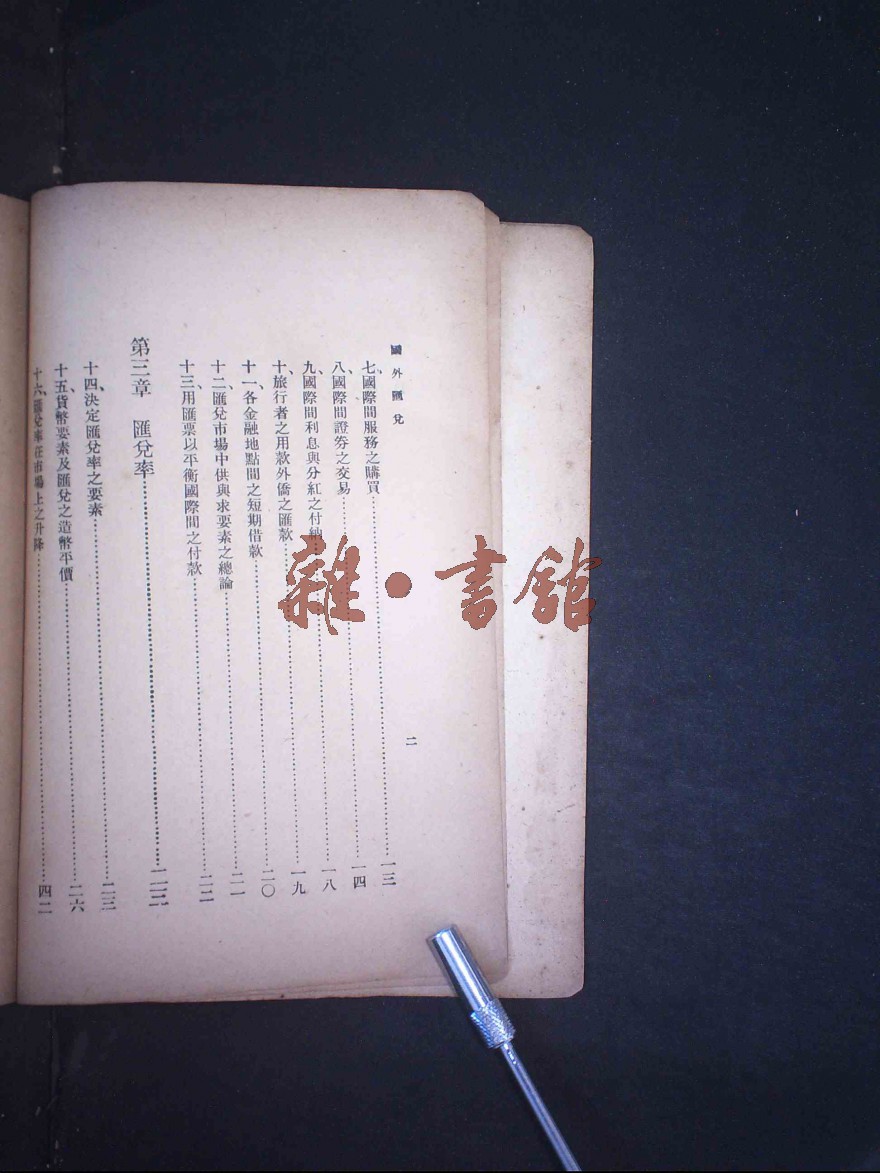 國外匯兌
二
七、國際間服務之購買……一三
八、國際間證券之交易……一四
九、國際間利息與分紅之付納……一八
十、旅行者之用款外僑之匯款……一九
十一、各金融地點間之短期借款……二〇
十二、匯兌市場中供與求要素之總論……二一
十三、用匯票以平衡國際間之付款……二二
第三章 匯兌率……二三
十四、決定匯兌率之要素……二三
十五、貨幣要素及匯兌之造幣平價……二六
十六、匯兌率在市場上之升降……四二
雜·書館